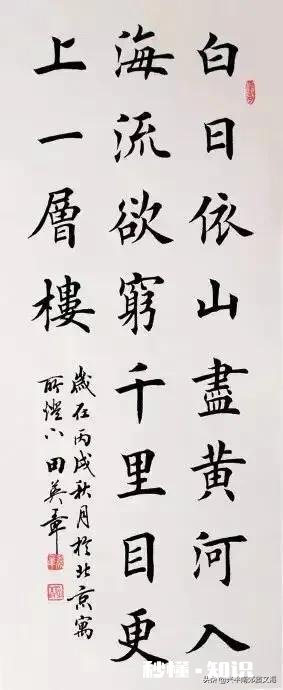 白日依山盡黃河入
海流欲窮千里目更
上一層樓
歲在丙戌秋月於北京寓
所燈下田英章
秒懂·知识